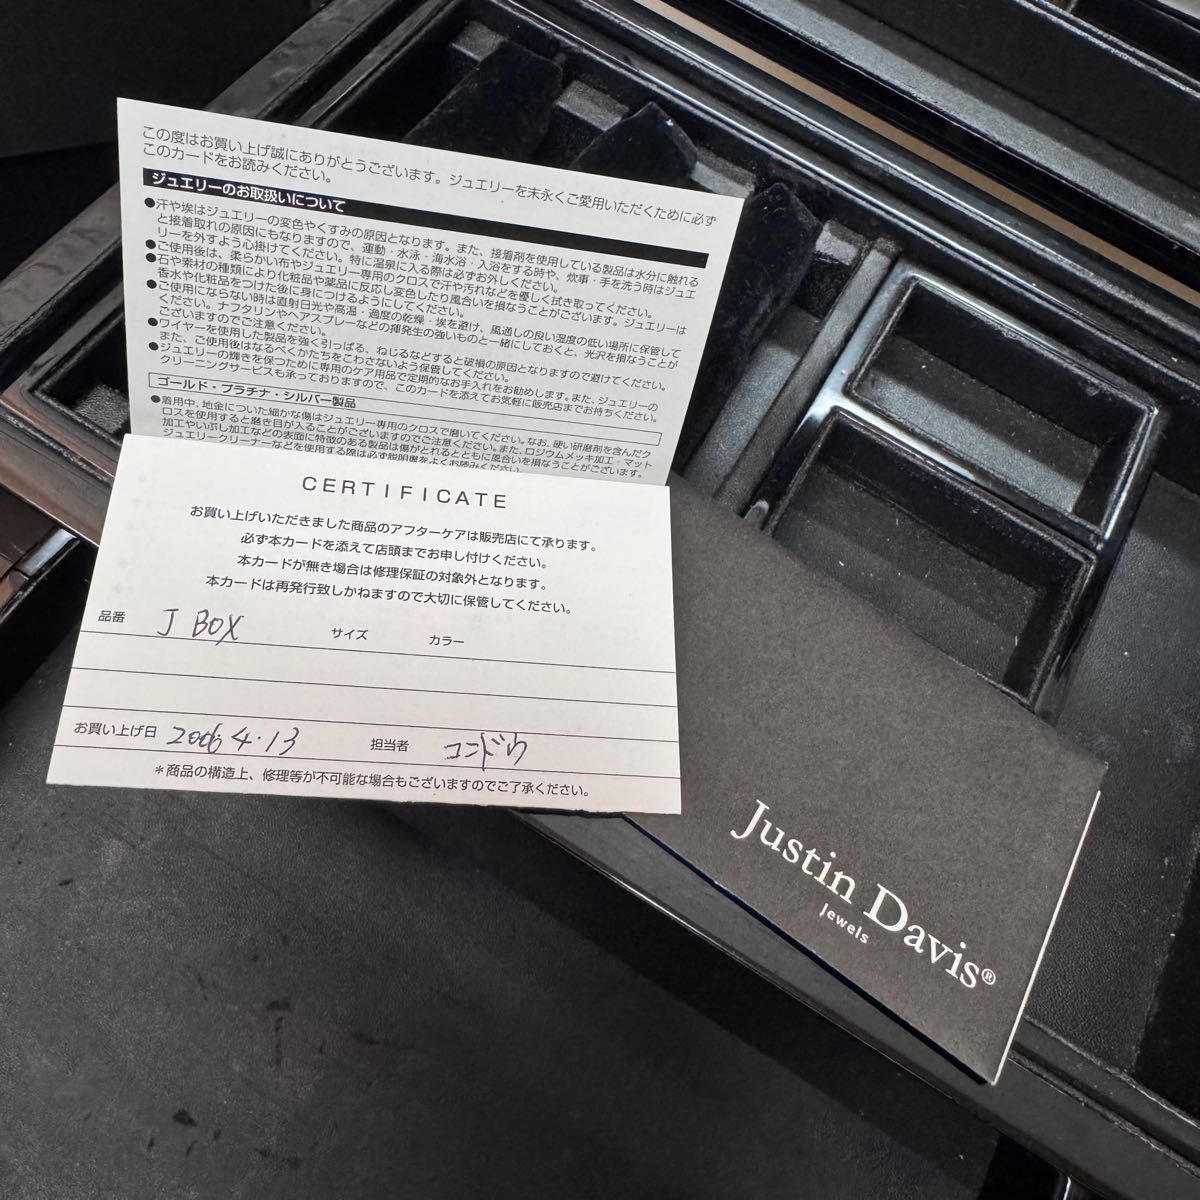 この度はお買い上げ誠にありがとうございます。ジュエリーを末永くご愛用いただくために必ず
このカードをお読みください。
ジュエリーのお取扱いについて
●汗や埃はジュエリーの変色やくすみの原因となります。また、接着剤を使用している製品は水分に触れる
と接着取れの原因にもなりますので、運動・水泳・海水浴・入浴をする時や、炊事・手を洗う時はジュエ
リーを外すよう心掛けてください。特に温泉に入る際は必ずお外しください。
●ご使用後は、柔らかい布やジュエリー専用のクロスで汗や汚れなどを優しく拭き取ってください。
●石や素材の種類により化粧品や薬品に反応し変色したり風合いを損なうことがございます。ジュエリーは
香水や化粧品をつけた後に身につけるようにしてください。
●ご使用にならない時は直射日光や高温・過度の乾燥・埃を避け、風通しの良い湿度の低い場所に保管して
ください。ナフタリンやヘアスプレーなどの揮発生の強いものと一緒にしておくと、光沢を損なうことが
ございますのでご注意ください。
●ワイヤーを使用した製品を強く引っぱる、ねじるなどすると破損の原因となりますので避けてください。
また、ご使用後はなるべくかたちをこわさないよう保管してください。
●ジュエリーの輝きを保つために専用のケア用品で定期的なお手入れをお勧めします。また、ジュエリーの
クリーニングサービスも承っておりますので、このカードを添えてお気軽に販売店までお持ちください。
ゴールド・プラチナ・シルバー製品
●着用中、地金についた細かな傷はジュエリー専用のクロスで磨いてください。なお、硬い研磨剤を含んだク
ロスを使用すると磨き目が入ることがございますのでご注意ください。また、ロジウムメッキ加工・マット
加工やいぶし加工などの表面に特徴のある製品は傷がとれるとともに風合いを損なうことがございます。
ジュエリークリーナーなどを使用する際は必ず説明書をよくお読みください。
CERTIFICATE
お買い上げいただきました商品のアフターケアは販売店にて承ります。
必ず本カードを添えて店頭までお申し付けください。
本カードが無き場合は修理保証の対象外となります。
本カードは再発行致しかねますので大切に保管してください。
品番 J BOX サイズ カラー
お買い上げ日 2006 4.13 担当者 コンドウ
＊商品の構造上、修理等が不可能な場合もございますのでご了承ください。
Justin Davis®
Jewels